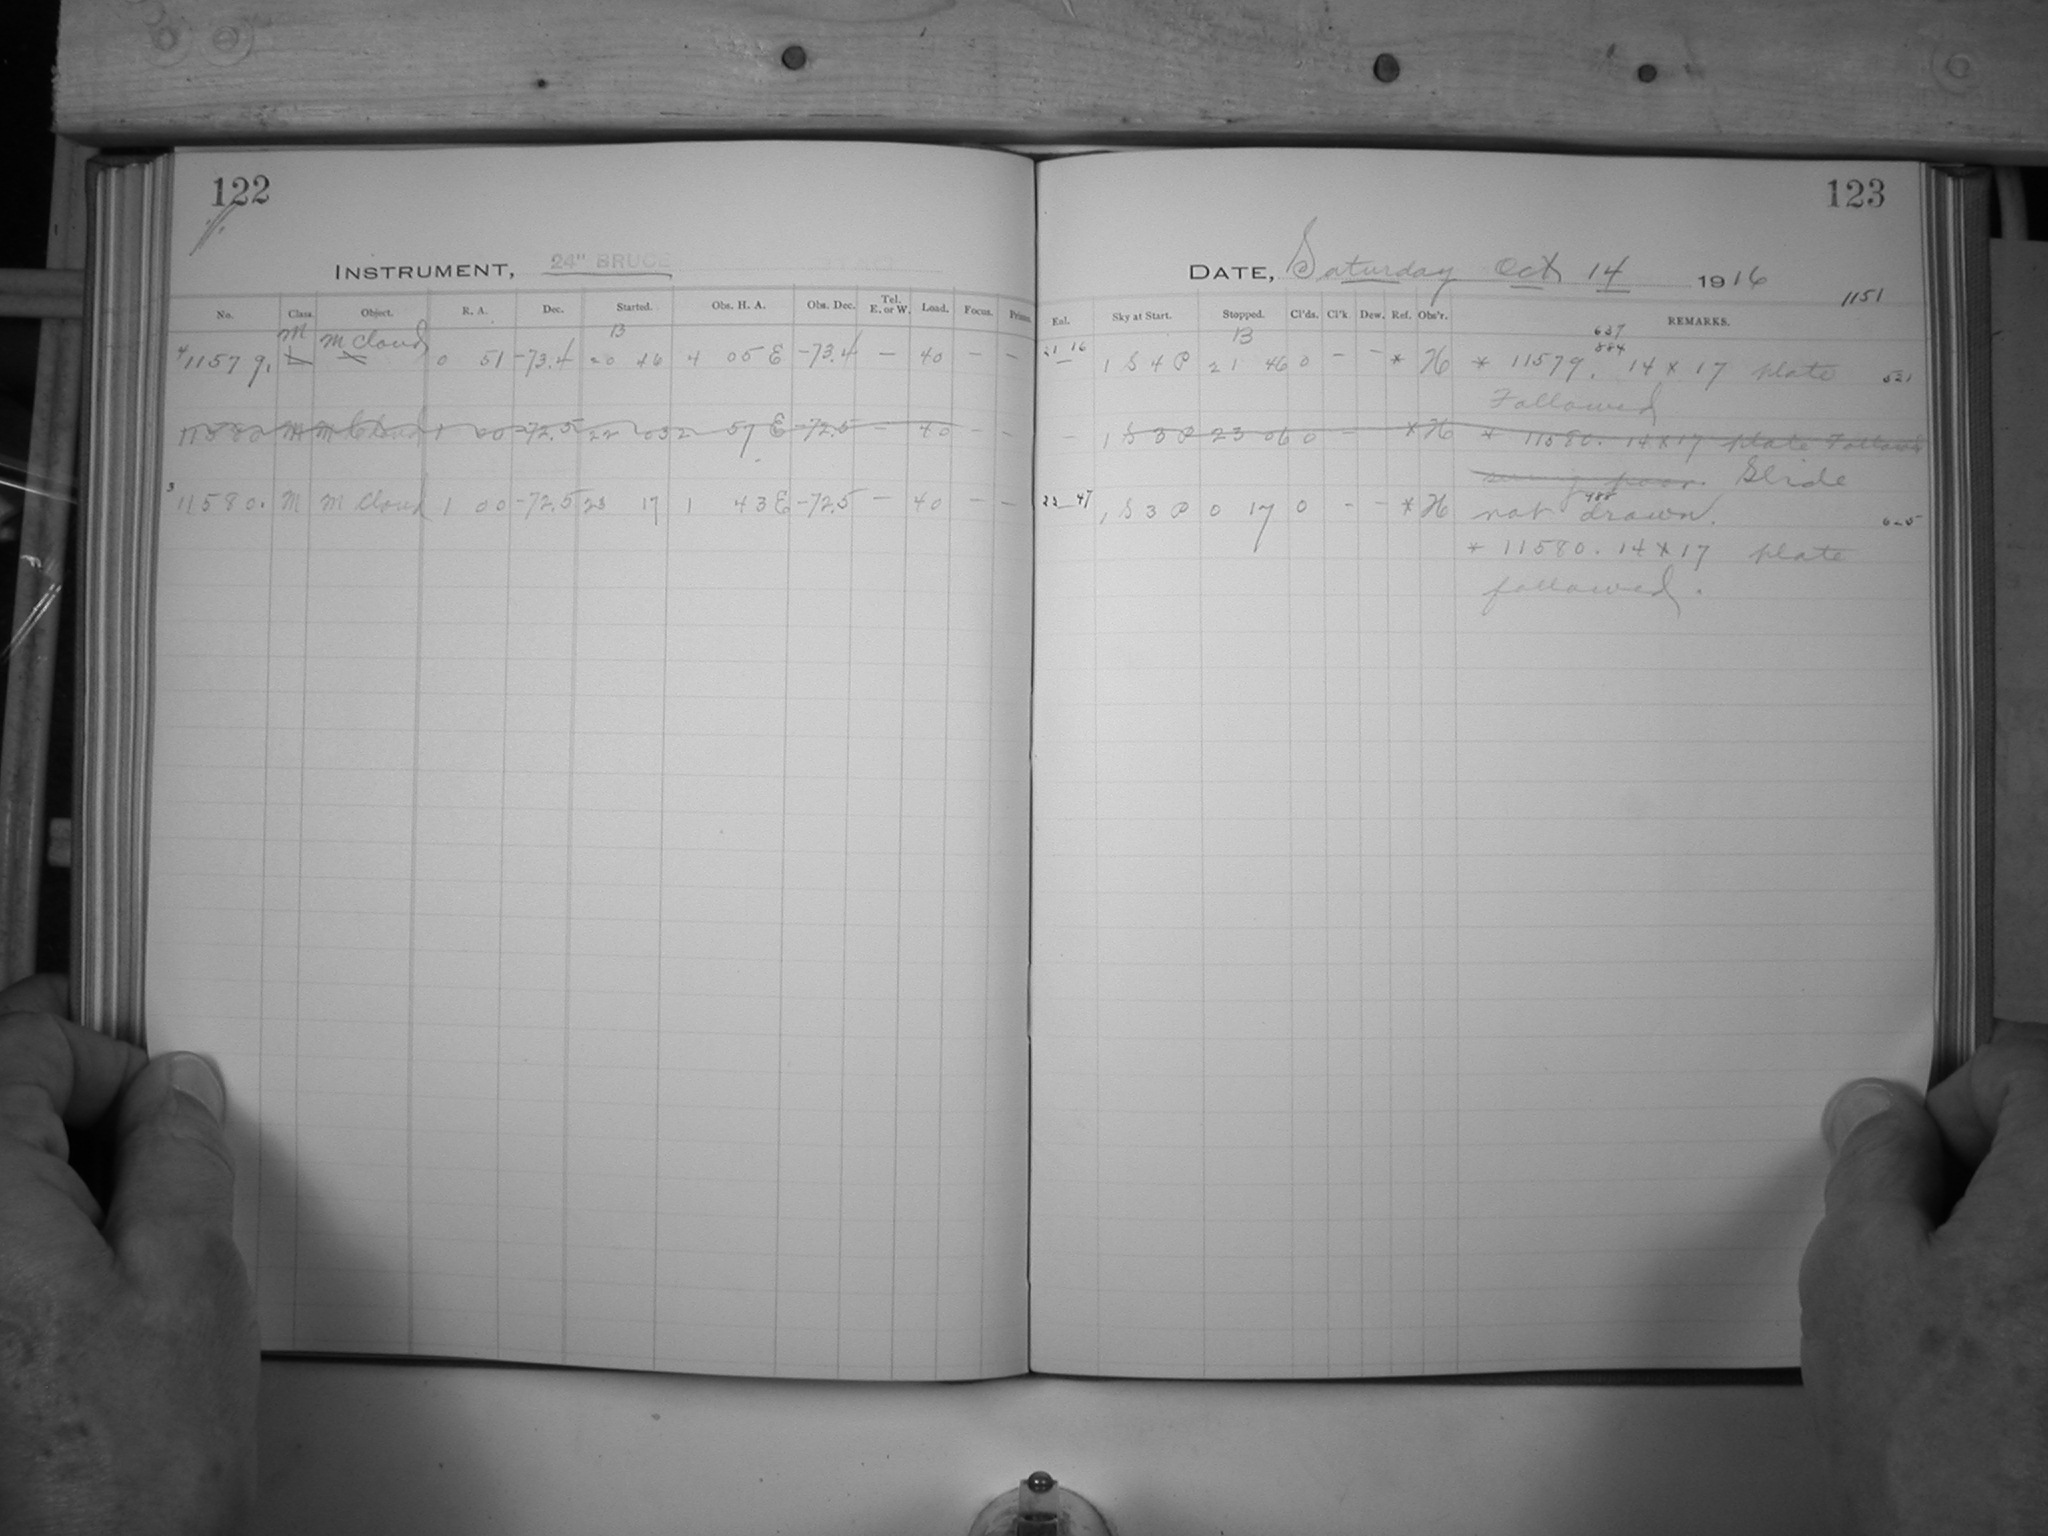 122
INSTRUMENT, 24" BRUCE
No. Class. Object. R. A. Dec. Started. Obs. H. A. Obs. Dec. Tel. E. or W. Load. Focus. Prisms.
M M Cloud B
11579. L X 0 51 -73.4 20 46 4 05 E -73.4 — 40 — —
11580 M M Cloud 1 00 -72.5 22 03 2 57 E -72.5 — 40 — —
3 11580. M M Cloud 1 00 -72.5 23 17 1 43 E -72.5 — 40 — —
123
DATE, Saturday Oct 14 1916
1151
Exl. Sky at Start. Stopped. Cl'ds. Cl'k. Dew. Ref. Obs'r. REMARKS.
B 637
884
21 16 1 S 4 P 21 46 0 - - * H * 11579. 14 x 17 plate 521
Followed
- 1 S 3 P 23 06 0 - * H * 11580. 14 x 17 plate Followed
seeing poor. Slide
22 47 1 S 3 P 0 17 0 - - * H not drawn. 488
* 11580. 14 x 17 plate
followed.